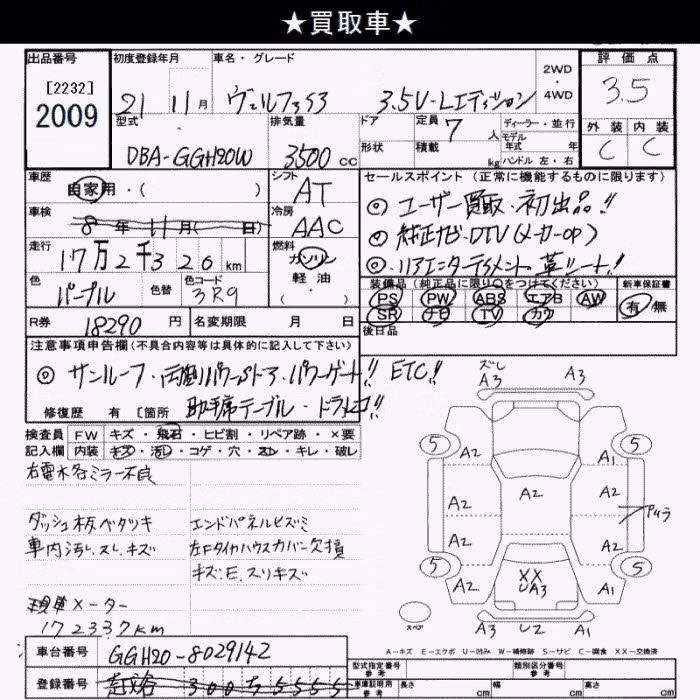 ★買取車★
出品番号 初度登録年月 車名・グレード 2WD・4WD 評価点
[2232]
2009
21 11月 ヴェルファイア 3.5V-Lエディション 3.5
型式 排気量 ドア 定員 7 人 ディーラー・並行 外装 内装
DBA-GGH20W 3500 cc 形状 積載 kg モデル年式 年 ハンドル 左・右 C C
車歴 自家用・( ) シフト AT セールスポイント (正常に機能するものに限ります)
車検 8年 11月( 日) 冷房 AAC ◎ユーザー買取・初出品!!
走行 17万2千326km 燃料 ガソリン 軽油 ( ) ◎純正ナビ・DTV(メーカーOP)
◎リアエンターテイメント 革シート!!
色 パープル 色替 色コード 3R9
装備品 (純正品に限り○をつけてください) 新車保証書
PS PW ABS エアB AW 有/無
SR ナビ TV カワ
R券 18290円 名変期限 月 日 後日品
注意事項申告欄(不具合内容等は具体的に記入して下さい)
◎サンルーフ・両側パワースドア・パワーゲート!! ETC!!
助手席テーブル・ドラレコ!!
修復歴 有 [箇所
検査員 FW キズ・飛石・ヒビ割・リペア跡・×要
記入欄 内装 キズ・汚レ・コゲ・穴・スレ・キレ・破レ
右電水各ミラー不良
ダッシュ木板ベタツキ エンドパネルヒズミ
車内汚レ.スレ.キズ 左Fタイヤハウスカバー欠損
キズ.E.スリキズ
現車メーター
172337km
ズレ
A3 A3
5 A2 A1 5
A2 A2 A2
A2 A2 アムラ
5 A2 XX UA3 A1 5
スペア A3 U2 A1
A-キズ E-エクボ U-凹み W-補修跡 S-サビ C-腐食 XX-交換済
車台番号 GGH20-8029142
登録番号 300 ち 5555
型式指定番号 参考 類別区分番号 参考
車庫証明用 参考 長さ cm 幅 cm 高さ cm